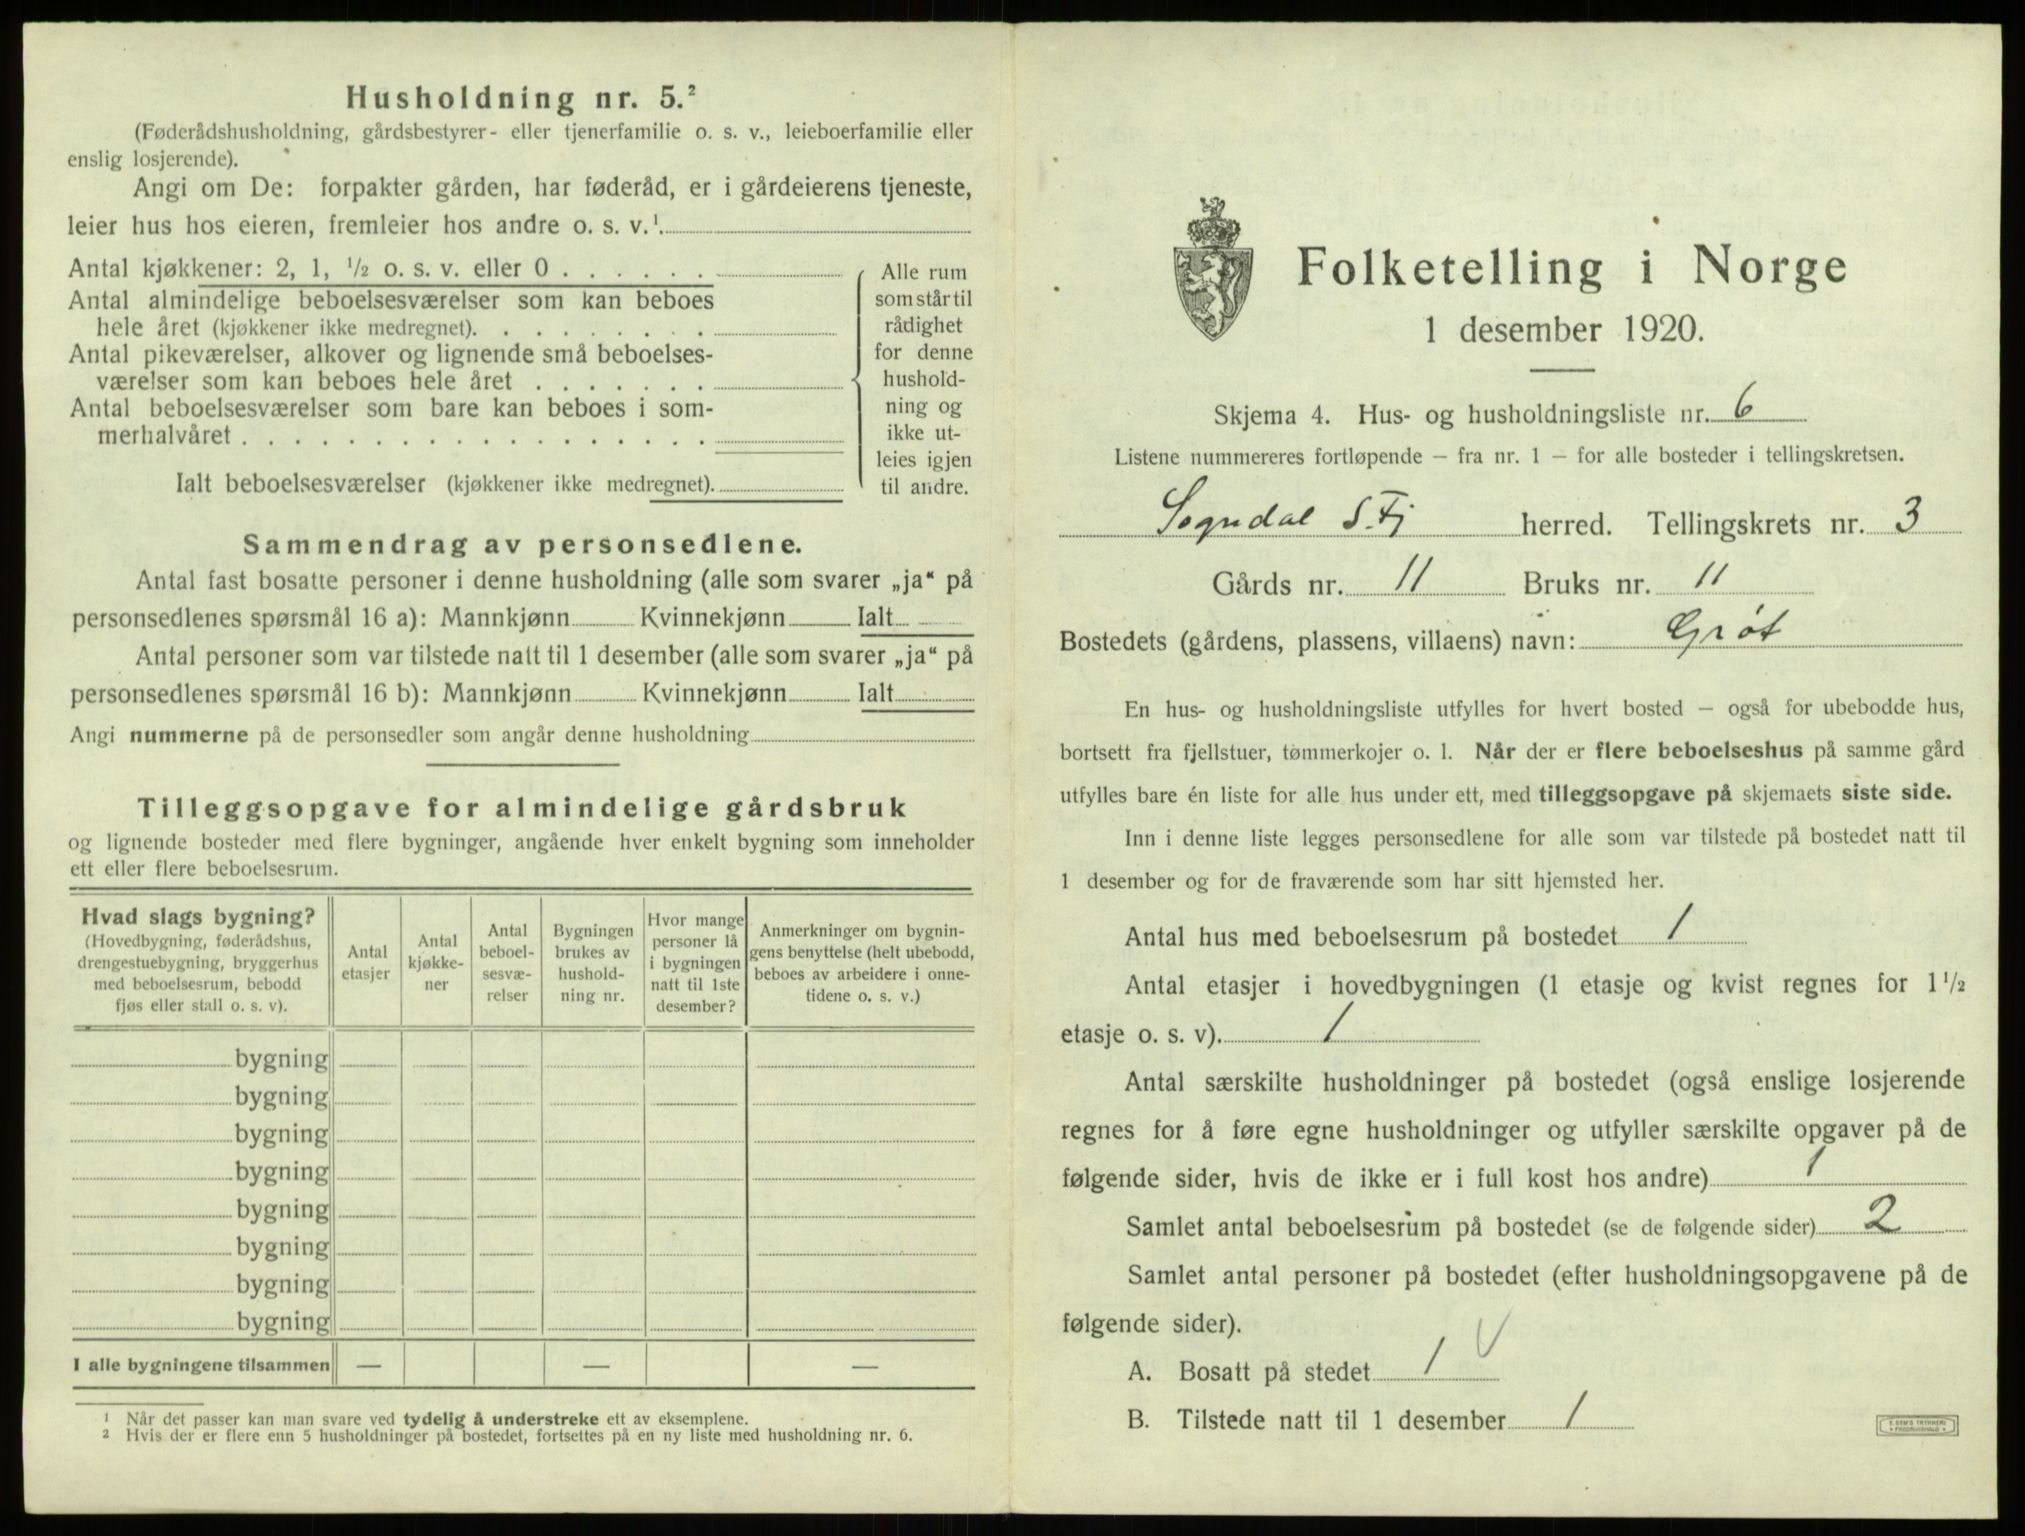 Husholdning nr. 5.²
(Føderådshusholdning, gårdsbestyrer- eller tjenerfamilie o. s. v., leieboerfamilie eller
enslig losjerende).
Angi om De: forpakter gården, har føderåd, er i gårdeierens tjeneste,
leier hus hos eieren, fremleier hos andre o. s. v.¹
Antal kjøkkener: 2, 1, ½ o. s. v. eller 0
Antal almindelige beboelsesværelser som kan beboes
hele året (kjøkkener ikke medregnet).
Antal pikeværelser, alkover og lignende små beboelses-
værelser som kan beboes hele året
Antal beboelsesværelser som bare kan beboes i som-
merhalvåret
Ialt beboelsesværelser (kjøkkener ikke medregnet).
Alle rum
som står til
rådighet
for denne
hushold-
ning og
ikke ut-
leies igjen
til andre.
Sammendrag av personsedlene.
Antal fast bosatte personer i denne husholdning (alle som svarer „ja“ på
personsedlenes spørsmål 16 a): Mannkjønn Kvinnekjønn Ialt
Antal personer som var tilstede natt til 1 desember (alle som svarer „ja“ på
personsedlenes spørsmål 16 b): Mannkjønn Kvinnekjønn Ialt
Angi nummerne på de personsedler som angår denne husholdning
Tilleggsopgave for almindelige gårdsbruk
og lignende bosteder med flere bygninger, angående hver enkelt bygning som inneholder
ett eller flere beboelsesrum.
Hvad slags bygning?
(Hovedbygning, føderådshus,
drengestuebygning, bryggerhus
med beboelsesrum, bebodd
fjøs eller stall o. s. v).
Antal
etasjer
Antal
kjøkke-
ner
Antal
beboel-
sesvæ-
relser
Bygningen
brukes av
hushold-
ning nr.
Hvor mange
personer lå
i bygningen
natt til 1ste
desember?
Anmerkninger om bygnin-
gens benyttelse (helt ubebodd,
beboes av arbeidere i onne-
tidene o. s. v.)
bygning
bygning
bygning
bygning
bygning
bygning
bygning
bygning
I alle bygningene tilsammen — — —
¹ Når det passer kan man svare ved tydelig å understreke ett av eksemplene.
² Hvis der er flere enn 5 husholdninger på bostedet, fortsettes på en ny liste med husholdning nr. 6.
Folketelling i Norge
1 desember 1920.
Skjema 4. Hus- og husholdningsliste nr. 6
Listene nummereres fortløpende – fra nr. 1 – for alle bosteder i tellingskretsen.
Sogndal S. Fj herred. Tellingskrets nr. 3
Gårds nr. 11 Bruks nr. 11
Bostedets (gårdens, plassens, villaens) navn: Grøt
En hus- og husholdningsliste utfylles for hvert bosted – også for ubebodde hus,
bortsett fra fjellstuer, tømmerkojer o. l. Når der er flere beboelseshus på samme gård
utfylles bare én liste for alle hus under ett, med tilleggsopgave på skjemaets siste side.
Inn i denne liste legges personsedlene for alle som var tilstede på bostedet natt til
1 desember og for de fraværende som har sitt hjemsted her.
Antal hus med beboelsesrum på bostedet 1
Antal etasjer i hovedbygningen (1 etasje og kvist regnes for 1½
etasje o. s. v). 1
Antal særskilte husholdninger på bostedet (også enslige losjerende
regnes for å føre egne husholdninger og utfyller særskilte opgaver på de
følgende sider, hvis de ikke er i full kost hos andre) 1
Samlet antal beboelsesrum på bostedet (se de følgende sider) 2
Samlet antal personer på bostedet (efter husholdningsopgavene på de
følgende sider).
A. Bosatt på stedet 1 V
B. Tilstede natt til 1 desember 1
E. SEM'S TRYKKERI
FREDRIKSHALD